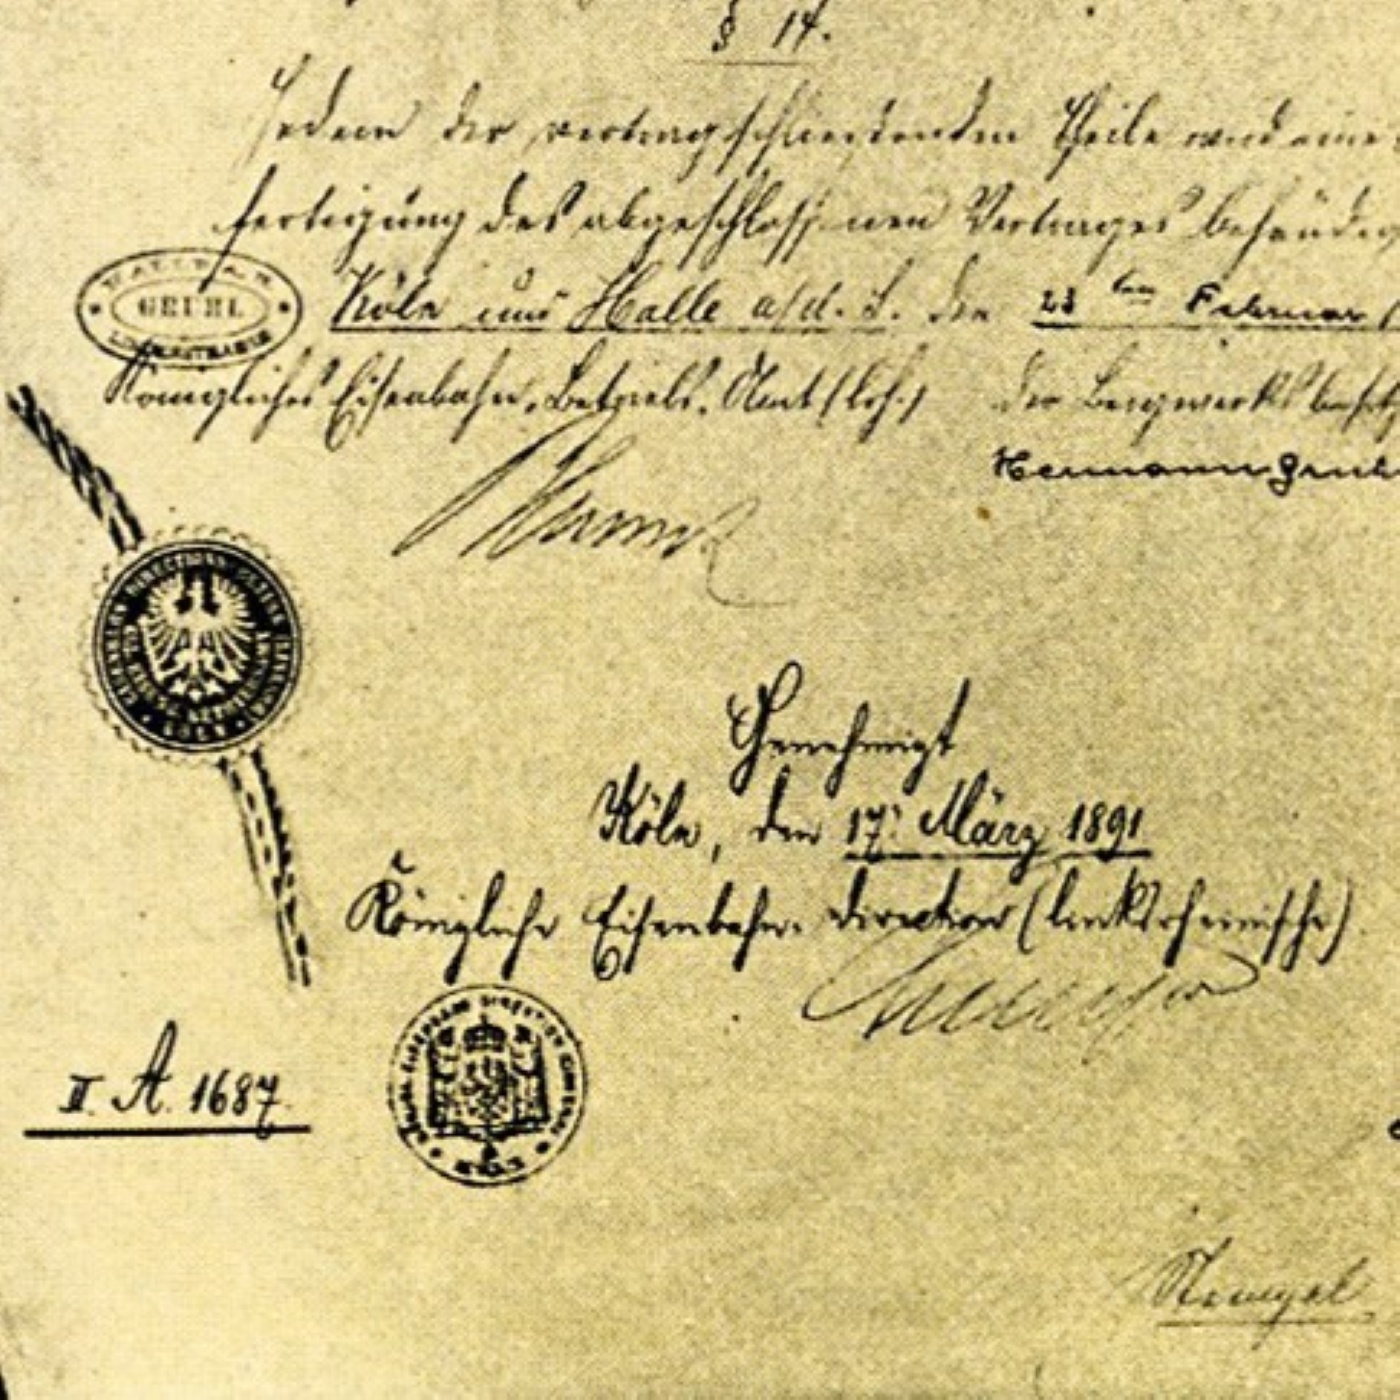 § 14.
Jedem der vertragschließenden Theile wird eine
fertigung des abgeschlossenen Vertrages behändig
GRUHL
Köln und Halle a/d. S. den 23ten Februar
Königliches Eisenbahn-Betriebs-Amt (lrh.) Der Bergwerksbesitz
Hermann Gruh
Genehmigt
Köln, den 17. März 1891
Königliche Eisenbahn-Direction (linksrheinische)
II. A. 1687
KÖLN
Stempel